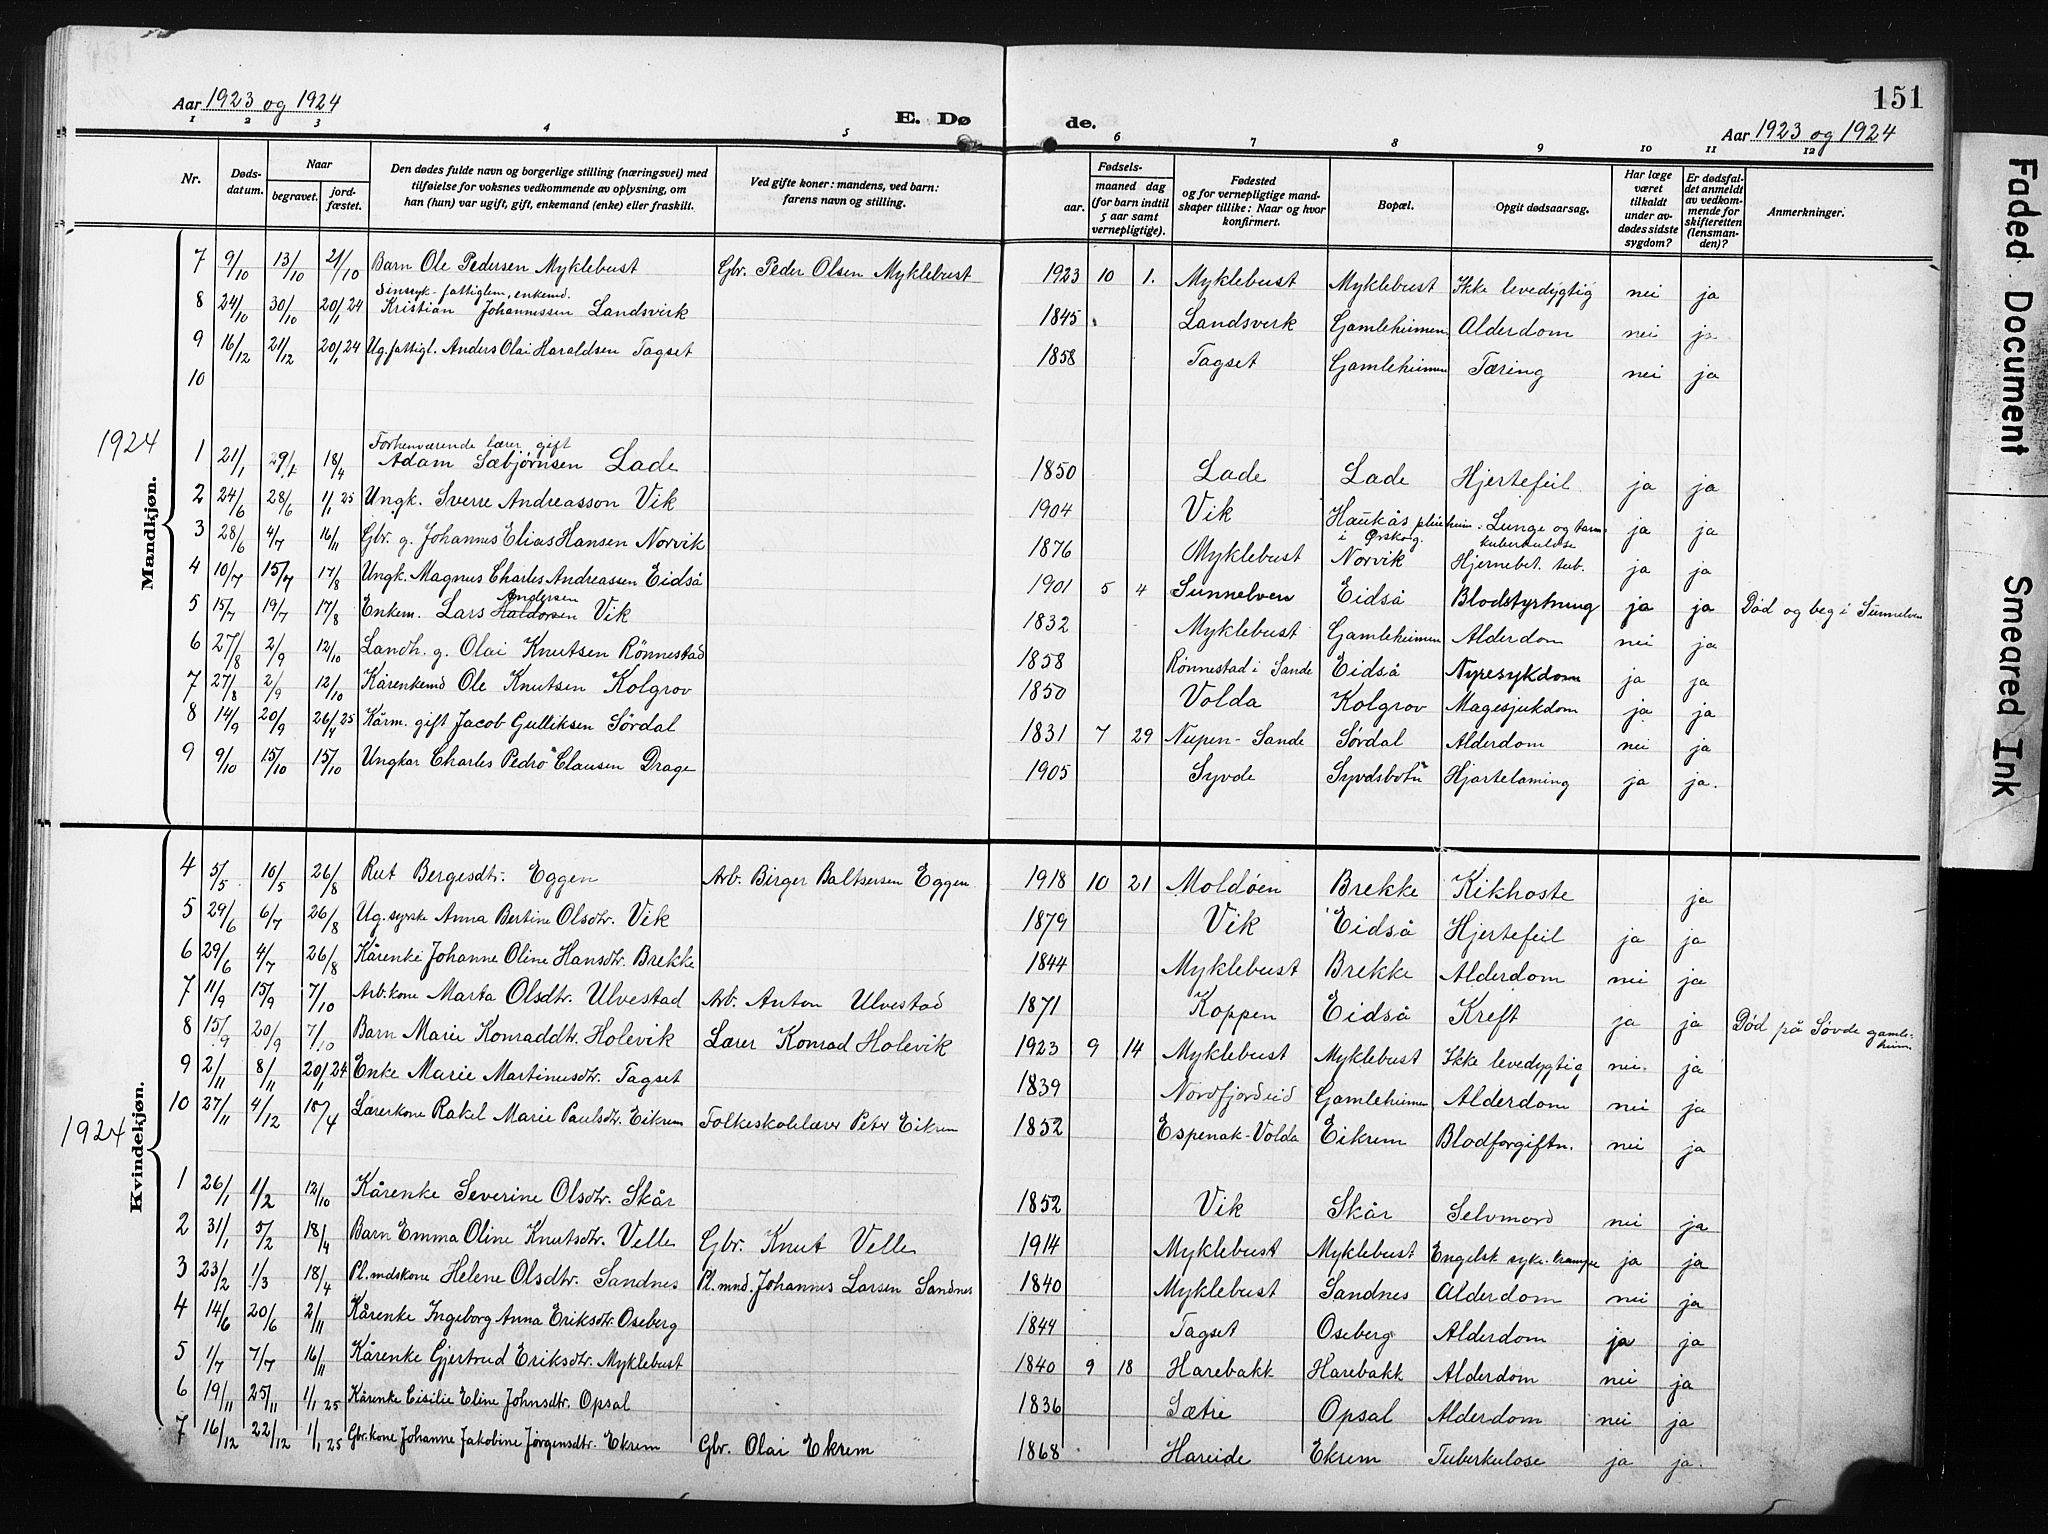 Aar 1923 og 1924
E. Dø de.
151
Aar 1923 og 1924
1 2 3 4 5 6 7 8 9 10 11 12
Nr.
Døds-
datum.
Naar
begravet.
jord-
fæstet.
Den dødes fulde navn og borgerlige stilling (næringsvei) med
tilføielse for voksnes vedkommende av oplysning, om
han (hun) var ugift, gift, enkemand (enke) eller fraskilt.
Ved gifte koner: mandens, ved barn:
farens navn og stilling.
Fødsels-
aar.
maaned dag
(for barn indtil
5 aar samt
vernepligtige).
Fødested
og for vernepligtige mand-
skaper tillike: Naar og hvor
konfirmert.
Bopæl.
Opgit dødsaarsag.
Har læge
været
tilkaldt
under av-
dødes sidste
sygdom?
Er dødsfal-
det anmeldt
av vedkom-
mende for
skifteretten
(lensman-
den)?
Anmerkninger.
Mandkjøn.
7 9/10 13/10 21/10 Barn Ole Pedersen Myklebust Gbr. Peder Olsen Myklebust 1923 10 1. Myklebust Myklebust Ikke levedygtig nei ja
Sinssyk fattiglem, enkemd.
8 24/10 30/10 20/1 24 Kristian Johannessen Landsverk 1845 Landsverk Gamleheimen Alderdom nei ja
9 16/12 21/12 20/1 24 Ug. fattigl. Anders Olai Haraldsen Tagset 1858 Tagset Gamleheimen Tæring nei ja
10
1924
Forhenværende lærer, gift
1 21/1 29/1 18/4 Adam Sæbjørnsen Lade 1850 Lade Lade Hjertefeil ja ja
2 24/6 28/6 1/1 25 Ungk. Sverre Andreasson Vik 1904 Vik Haukås pleieheim i Ørskog. Lunge og tarmtuberkulose ja ja
3 28/6 4/7 16/11 Gbr. g. Johannes Elias Hansen Norvik 1876 Myklebust Norvik Hjernebet. tub. ja ja
4 10/7 15/7 17/8 Ungk. Magnus Charles Andreassen Eidså 1901 5 4 Sunnelven Eidså Blodstyrtning ja ja Død og beg i Sunnelven
5 15/7 19/7 17/8 Enkem. Lars Haldorsen Andersen Vik 1832 Myklebust Gamleheimen Alderdom nei ja
6 27/8 2/9 12/10 Landh. g. Olai Knutsen Rønnestad 1858 Rønnestad i Sande Eidså Nyresykdom ja ja
7 27/8 2/9 12/10 Kårenkemd Ole Knutsen Kolgrov 1850 Volda Kolgrov Magesjukdom ja ja
8 14/9 20/9 26/4 25 Kårm. gift Jacob Gulliksen Sørdal 1831 7 29 Nupen-Sande Sørdal Alderdom nei ja
9 9/10 15/10 15/10 Ungkar Charles Pedro Clausen Drage 1905 Syvde Syvdsbotn Hjartelaming ja ja.
Kvindekjøn.
4 5/5 10/5 26/8 Rut Bergesdtr. Eggen Arb. Birger Baltsersen Eggen 1918 10 21 Moldøen Brekke Kikhoste ja
5 29/6 6/7 26/8 Ug. syrske Anna Bertine Olsdtr. Vik 1879 Vik Eidså Hjertefeil ja ja
6 29/6 4/7 26/8 Kårenke Johanne Oline Hansdtr. Brekke 1844 Myklebust Brekke Alderdom nei ja
7 11/9 15/9 7/10 Arb.kone Marta Olsdtr. Ulvestad Arb. Anton Ulvestad 1871 Koppen Eidså Kreft ja ja Død på Søvde gamleheim
8 15/9 20/9 7/10 Barn Marie Konraddtr. Holevik Lærer Konrad Holevik 1923 9 14 Myklebust Myklebust Ikke levedygtig nei. ja
9 2/11 8/11 20/1 24 Enke Marie Martinusdtr. Tagset 1839 Nordfjordeid Gamleheimen Alderdom nei ja
10 27/11 4/12 15/4 Lærerkone Rakel Marie Paulsdtr. Eikrem Folkeskolelærer Peter Eikrem 1852 Espenak-Volda Eikrem Blodforgiftn. nei ja
1924
1 26/1 1/2 12/10 Kårenke Severine Olsdtr. Skår 1852 Vik Skår Selvmord nei ja
2 31/1 5/2 18/4 Barn Emma Oline Knutsdtr. Velle Gbr. Knut Velle 1914 Myklebust Myklebust Engelsk syke. krampe ja ja
3 23/2 1/3 18/4 Pl. mdskone Helene Olsdtr. Sandnes Pl. mnd. Johannes Larsen Sandnes 1840 Myklebust Sandnes Alderdom nei ja
4 14/6 20/6 2/11 Kårenke Ingeborg Anna Eriksdtr. Oseberg 1844 Tagset Oseberg Alderdom ja ja
5 1/7 7/7 16/11 Kårenke Gjertrud Eriksdtr. Myklebust 1840 9 18 Harebakk Harebakk Alderdom nei ja
6 19/11 25/11 1/1 25 Kårenke Cisilie Eline Johnsdtr. Opsal 1836 Sætre Opsal Alderdom nei ja
7 16/12 22/12 1/1 25 Gbr.kone Johanne Jakobine Jørgensdtr. Ekrem Gbr. Olai Ekrem 1868 Hareide Ekrem Tuberkulose ja ja.
Faded Document
Smeared Ink